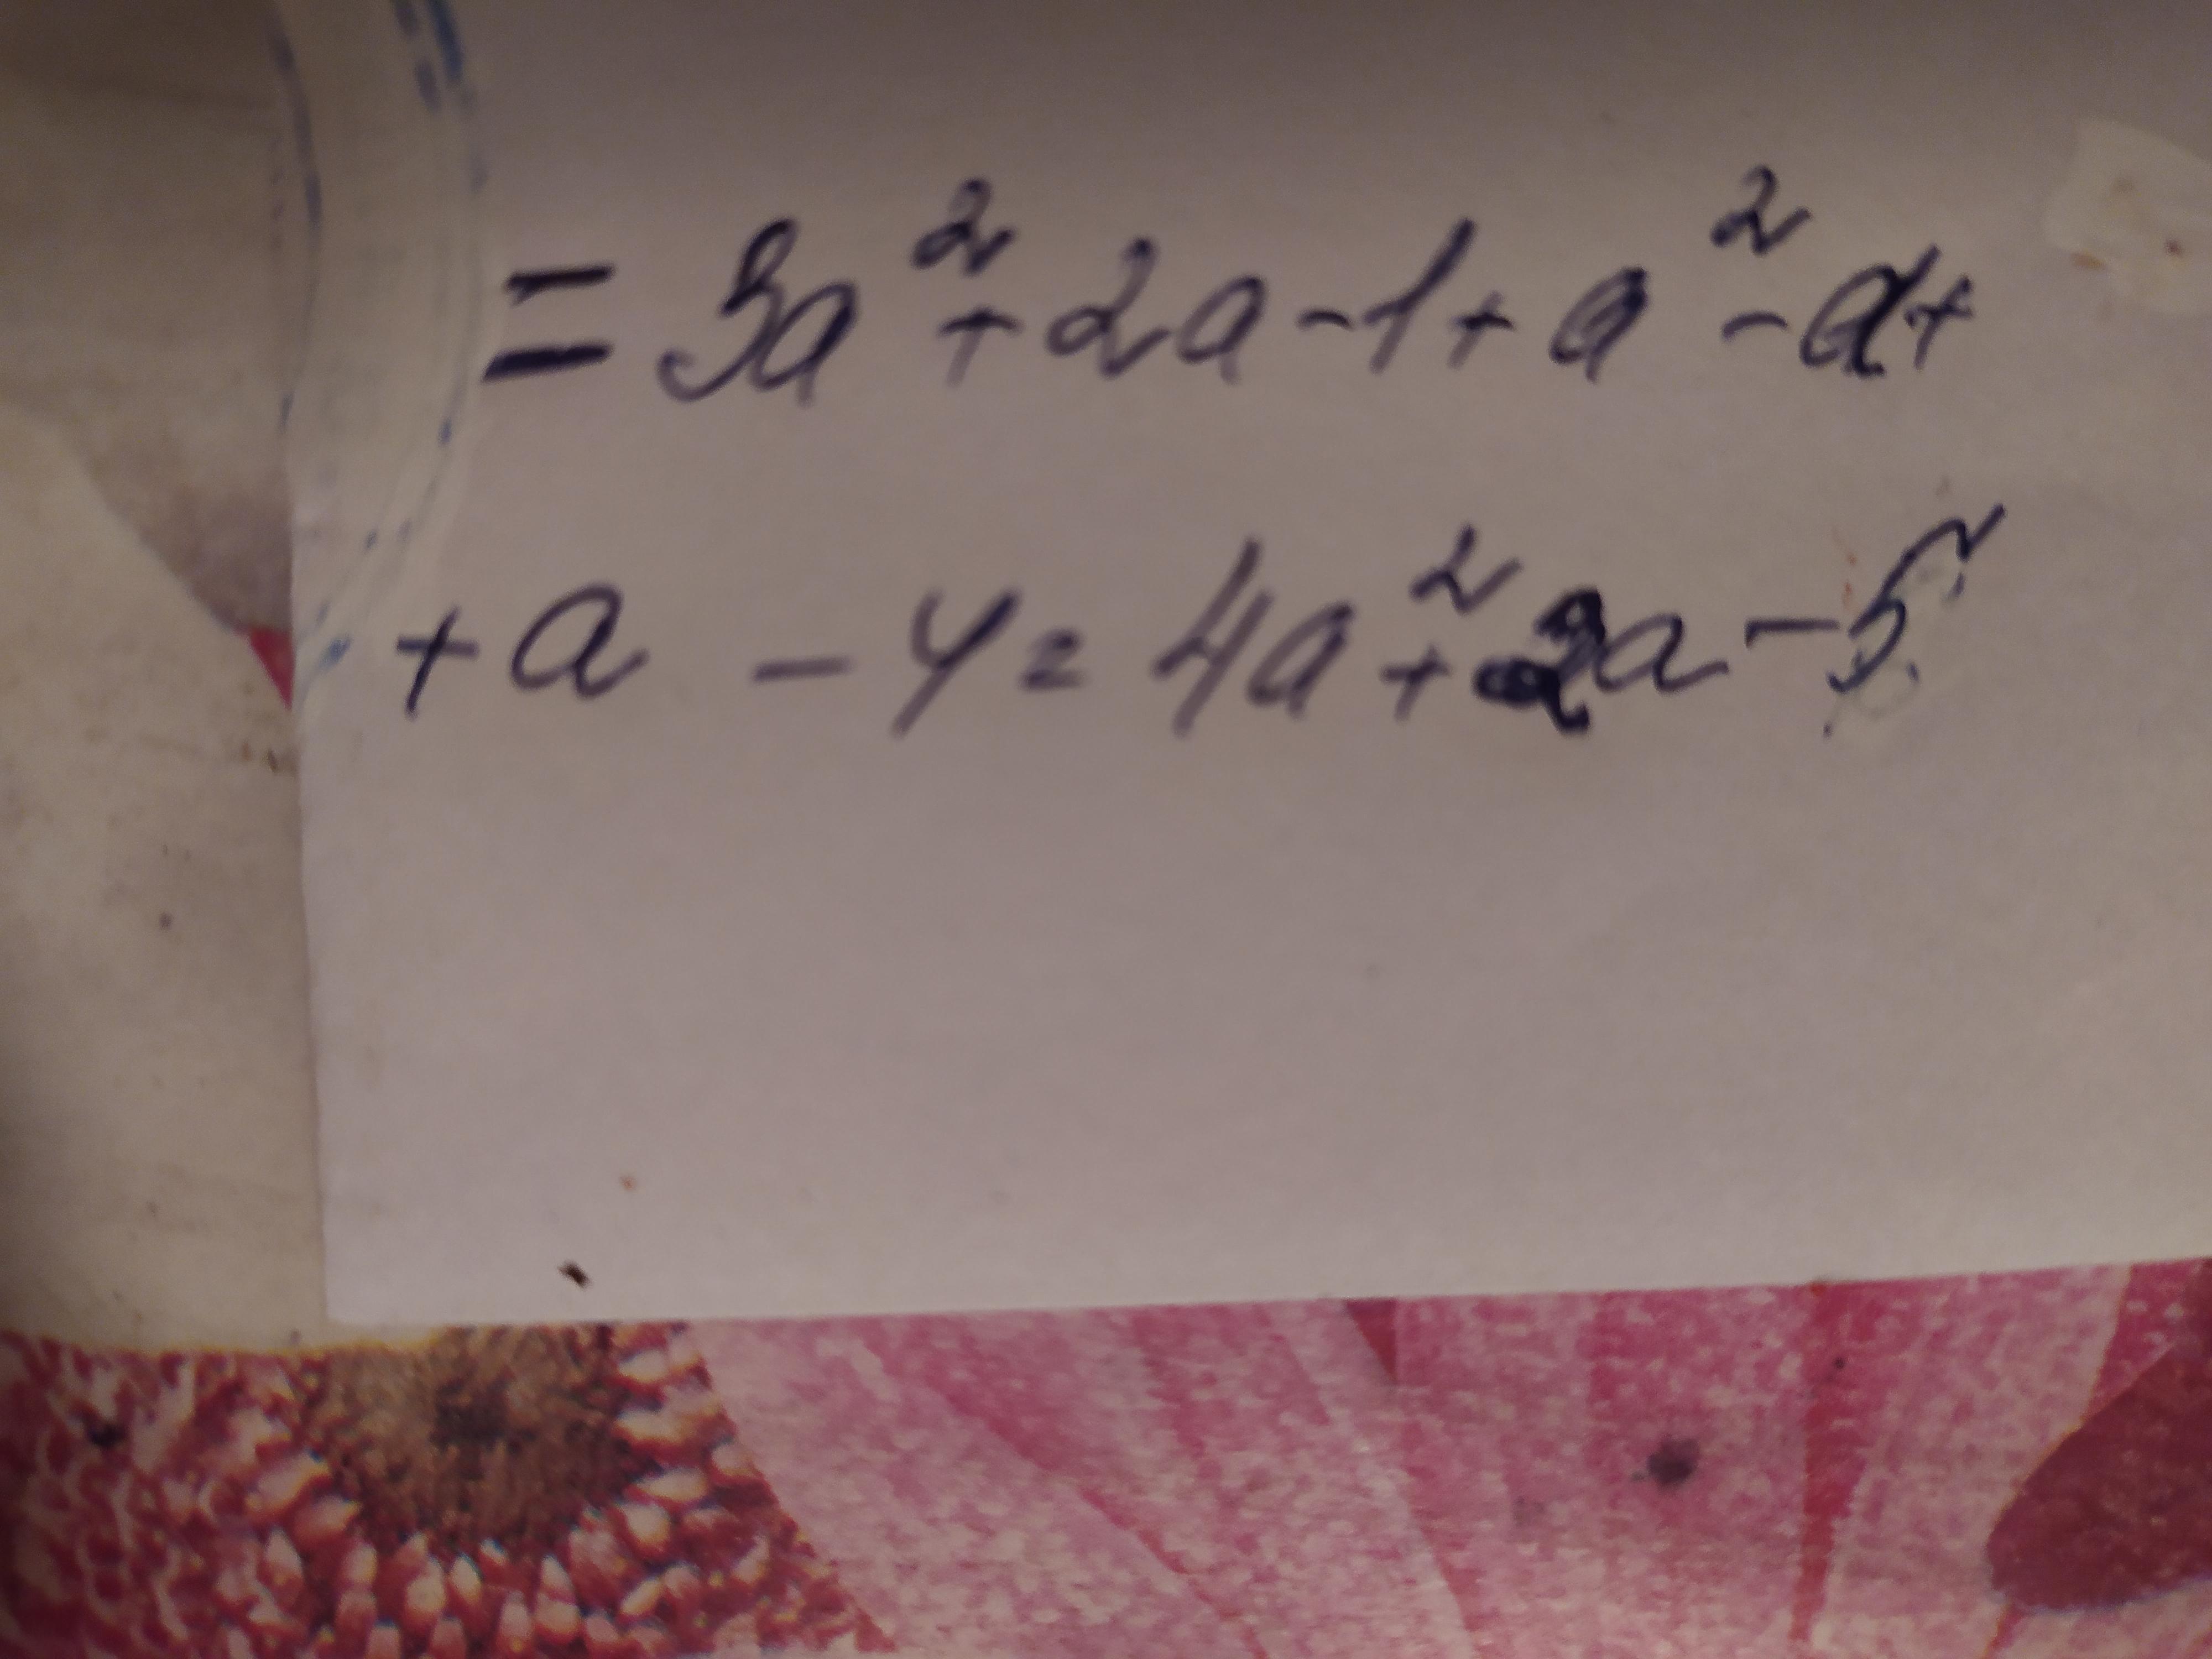 = 3a² + 2a - 1 + a² - a +
+ a - 4 = 4a² + 2a - 5